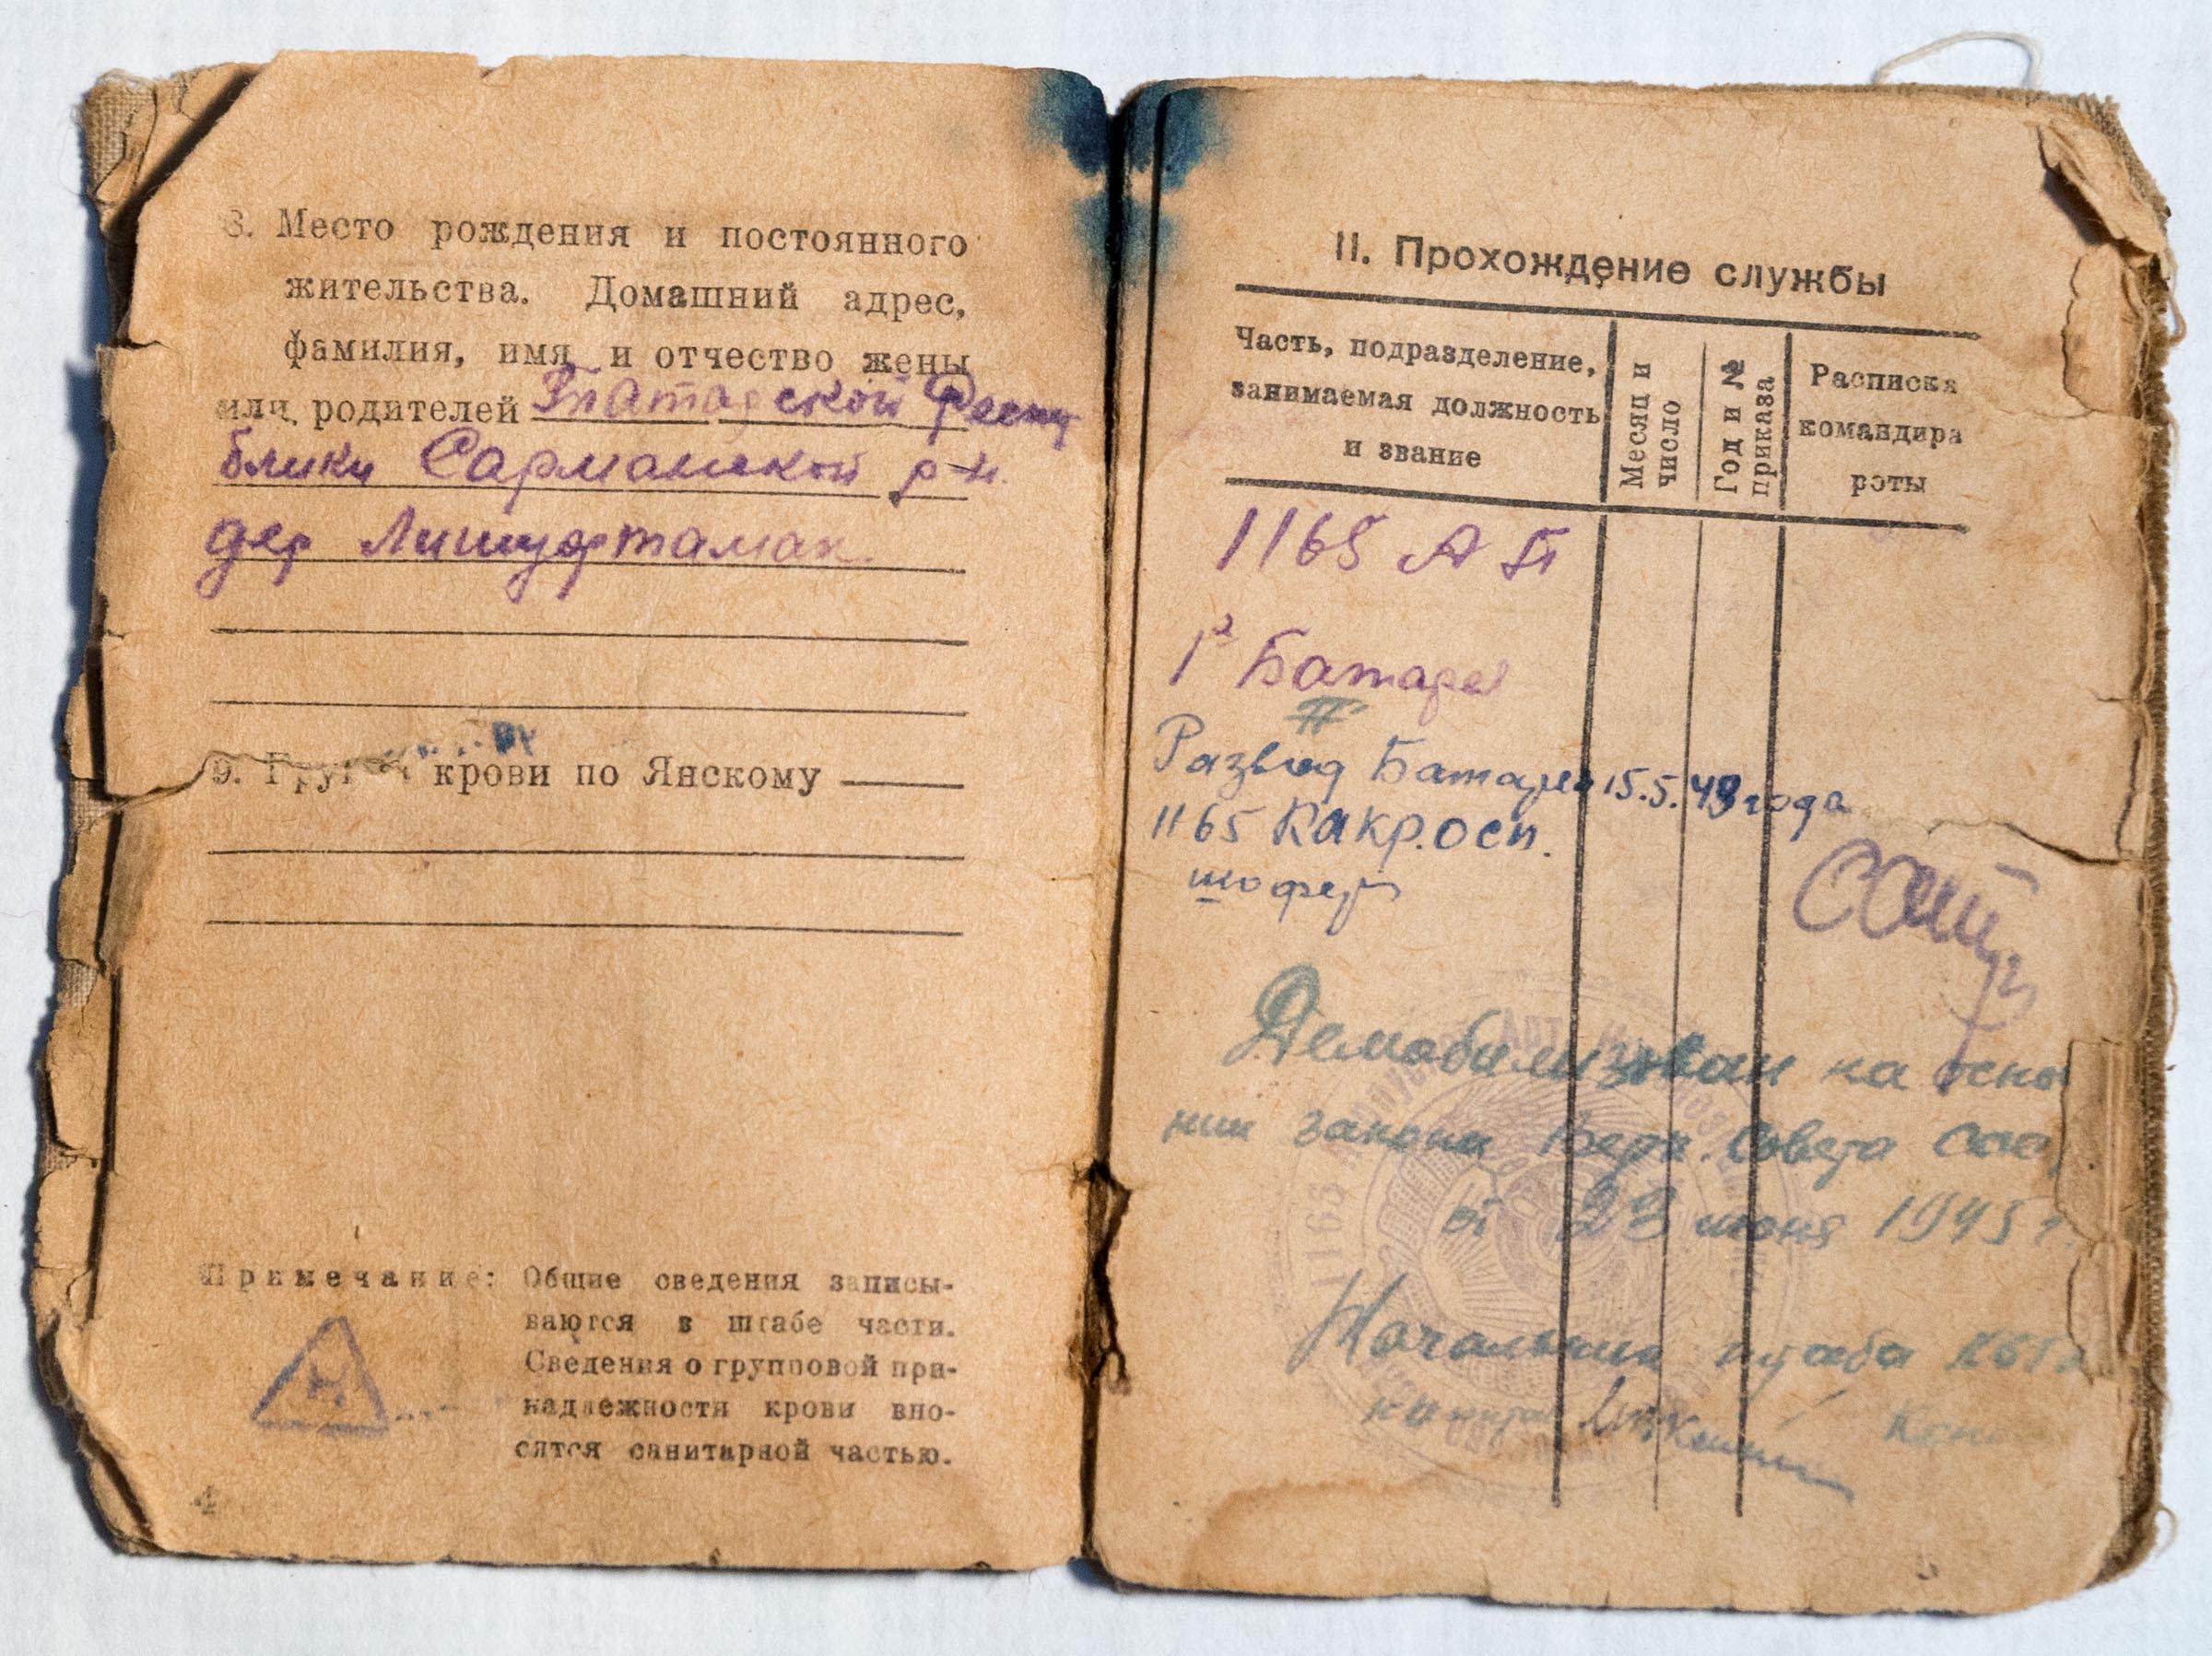 8. Место рождения и постоянного
жительства. Домашний адрес,
фамилия, имя и отчество жены
или родителей Татарской Респу
блики Сармановской р-н.
дер Лишуртамак.
9. Группа крови по Янскому
Примечание: Общие сведения записы-
ваются в штабе части.
Сведения о групповой при-
надлежности крови вно-
сятся санитарной частью.
4
II. Прохождение службы
Часть, подразделение,
занимаемая должность
и звание
Месяц и
число
Год и №
приказа
Расписка
командира
роты
1165 АП
Батаре
Развед Батареи 15.5.43 года
1165
шофер
Демобилизован на осно
нии закона Верх. Совета ССС
от 23 июня 1945 г.
Начальник штаба